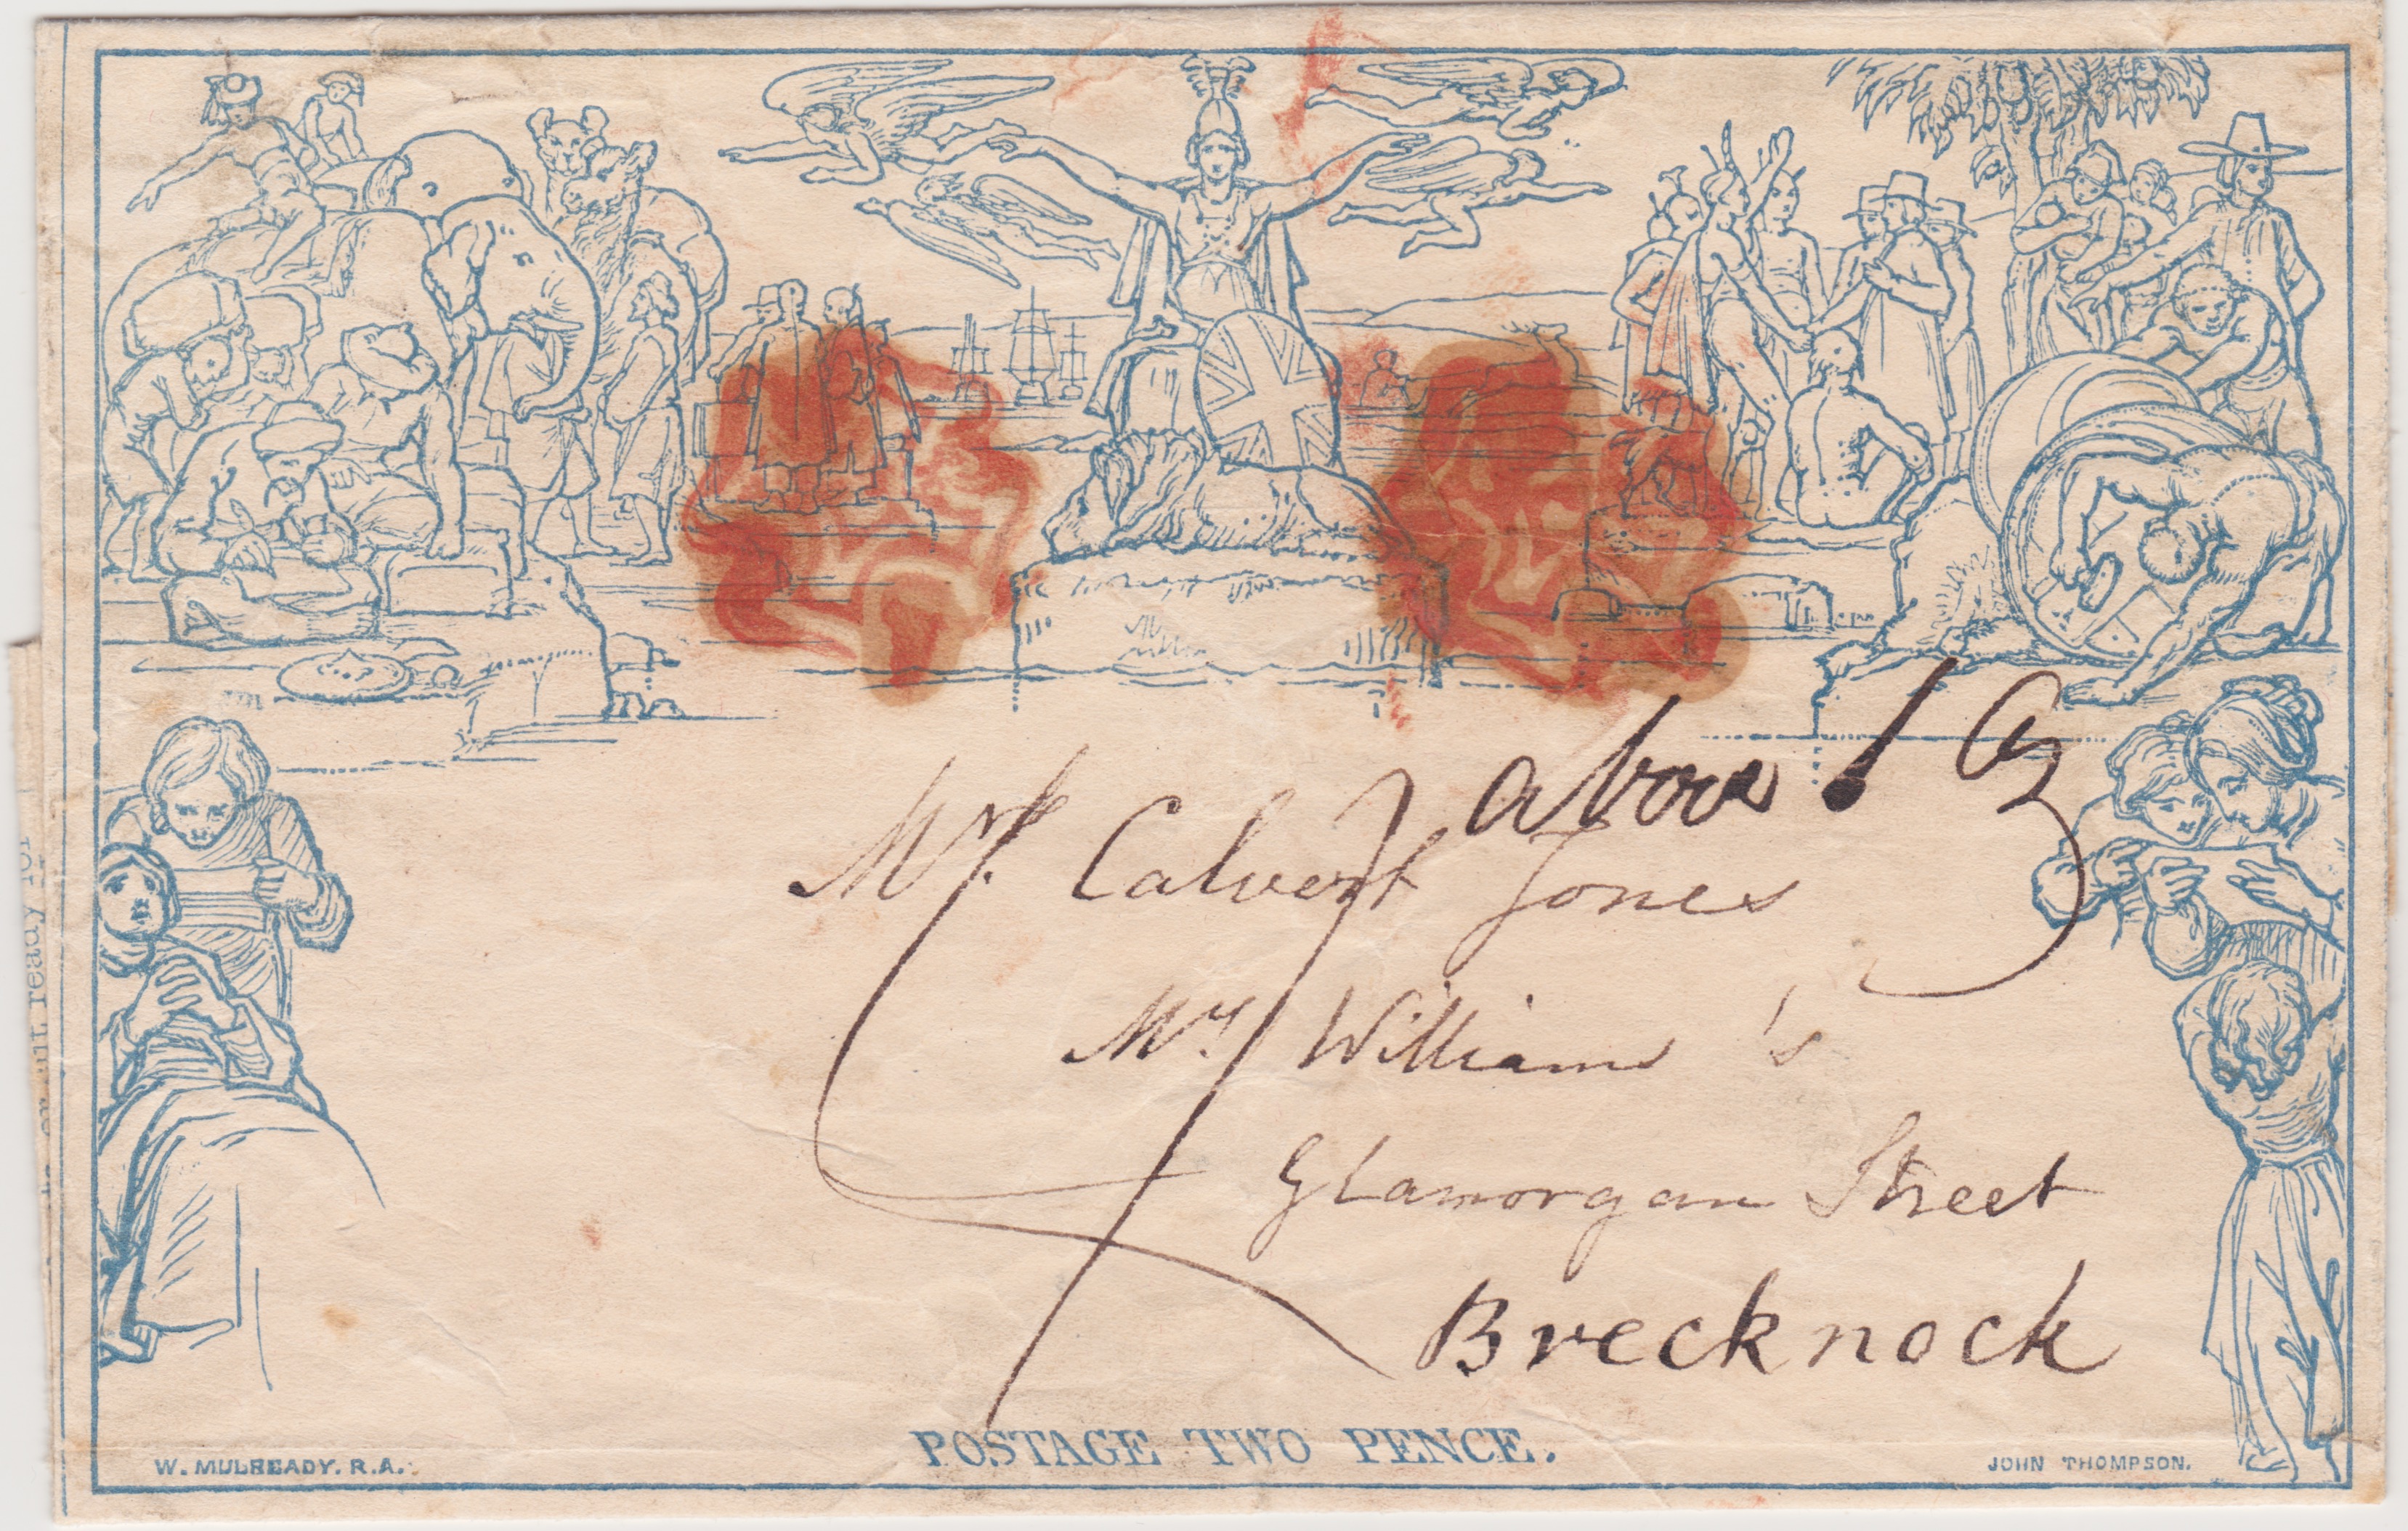 above 1 oz
Mrs. Calvert Jones
Mrs Williams's
Glamorgan Street
Brecknock
POSTAGE TWO PENCE.
W. MULREADY. R.A.
JOHN THOMPSON.
ready for